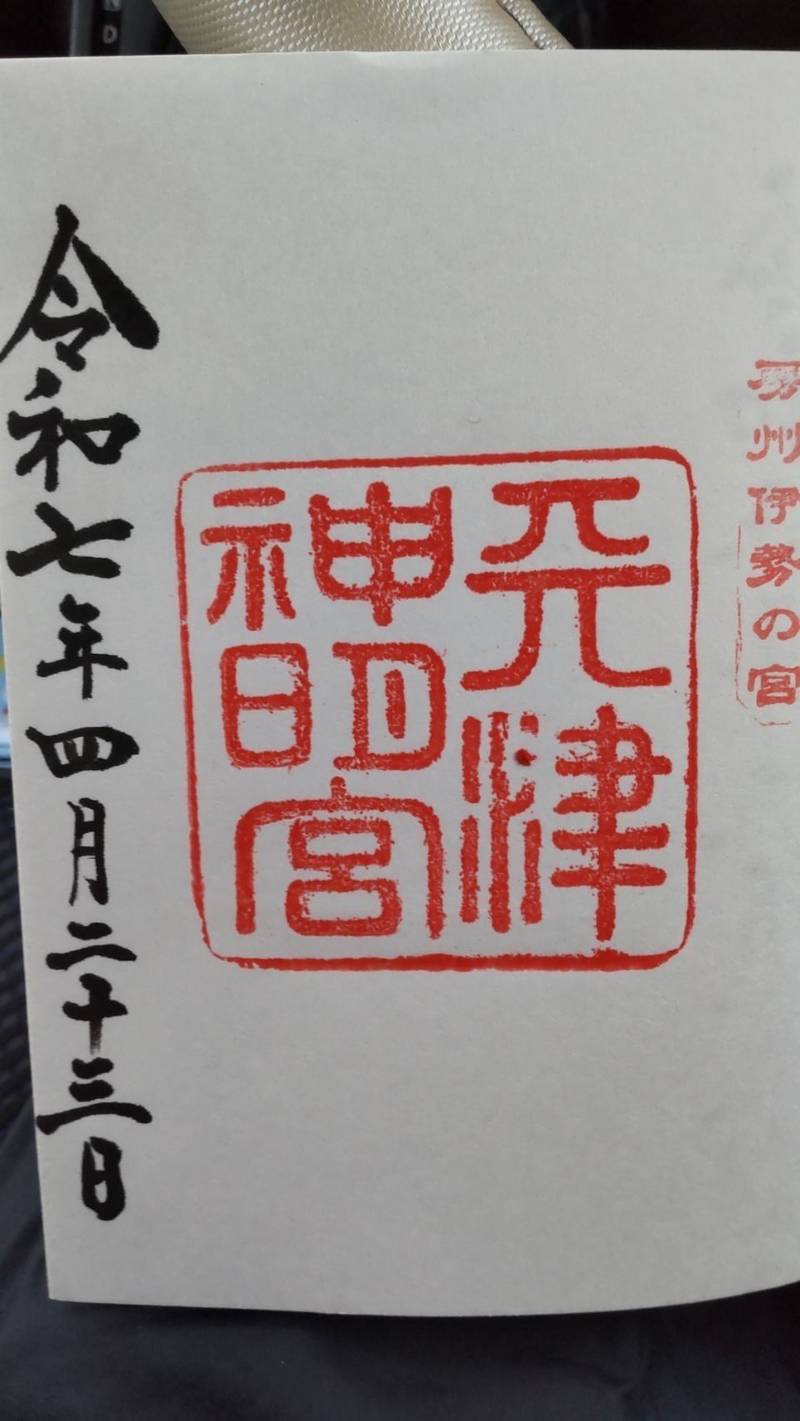 房州伊勢の宮
天津
神明宮
令和七年四月二十三日